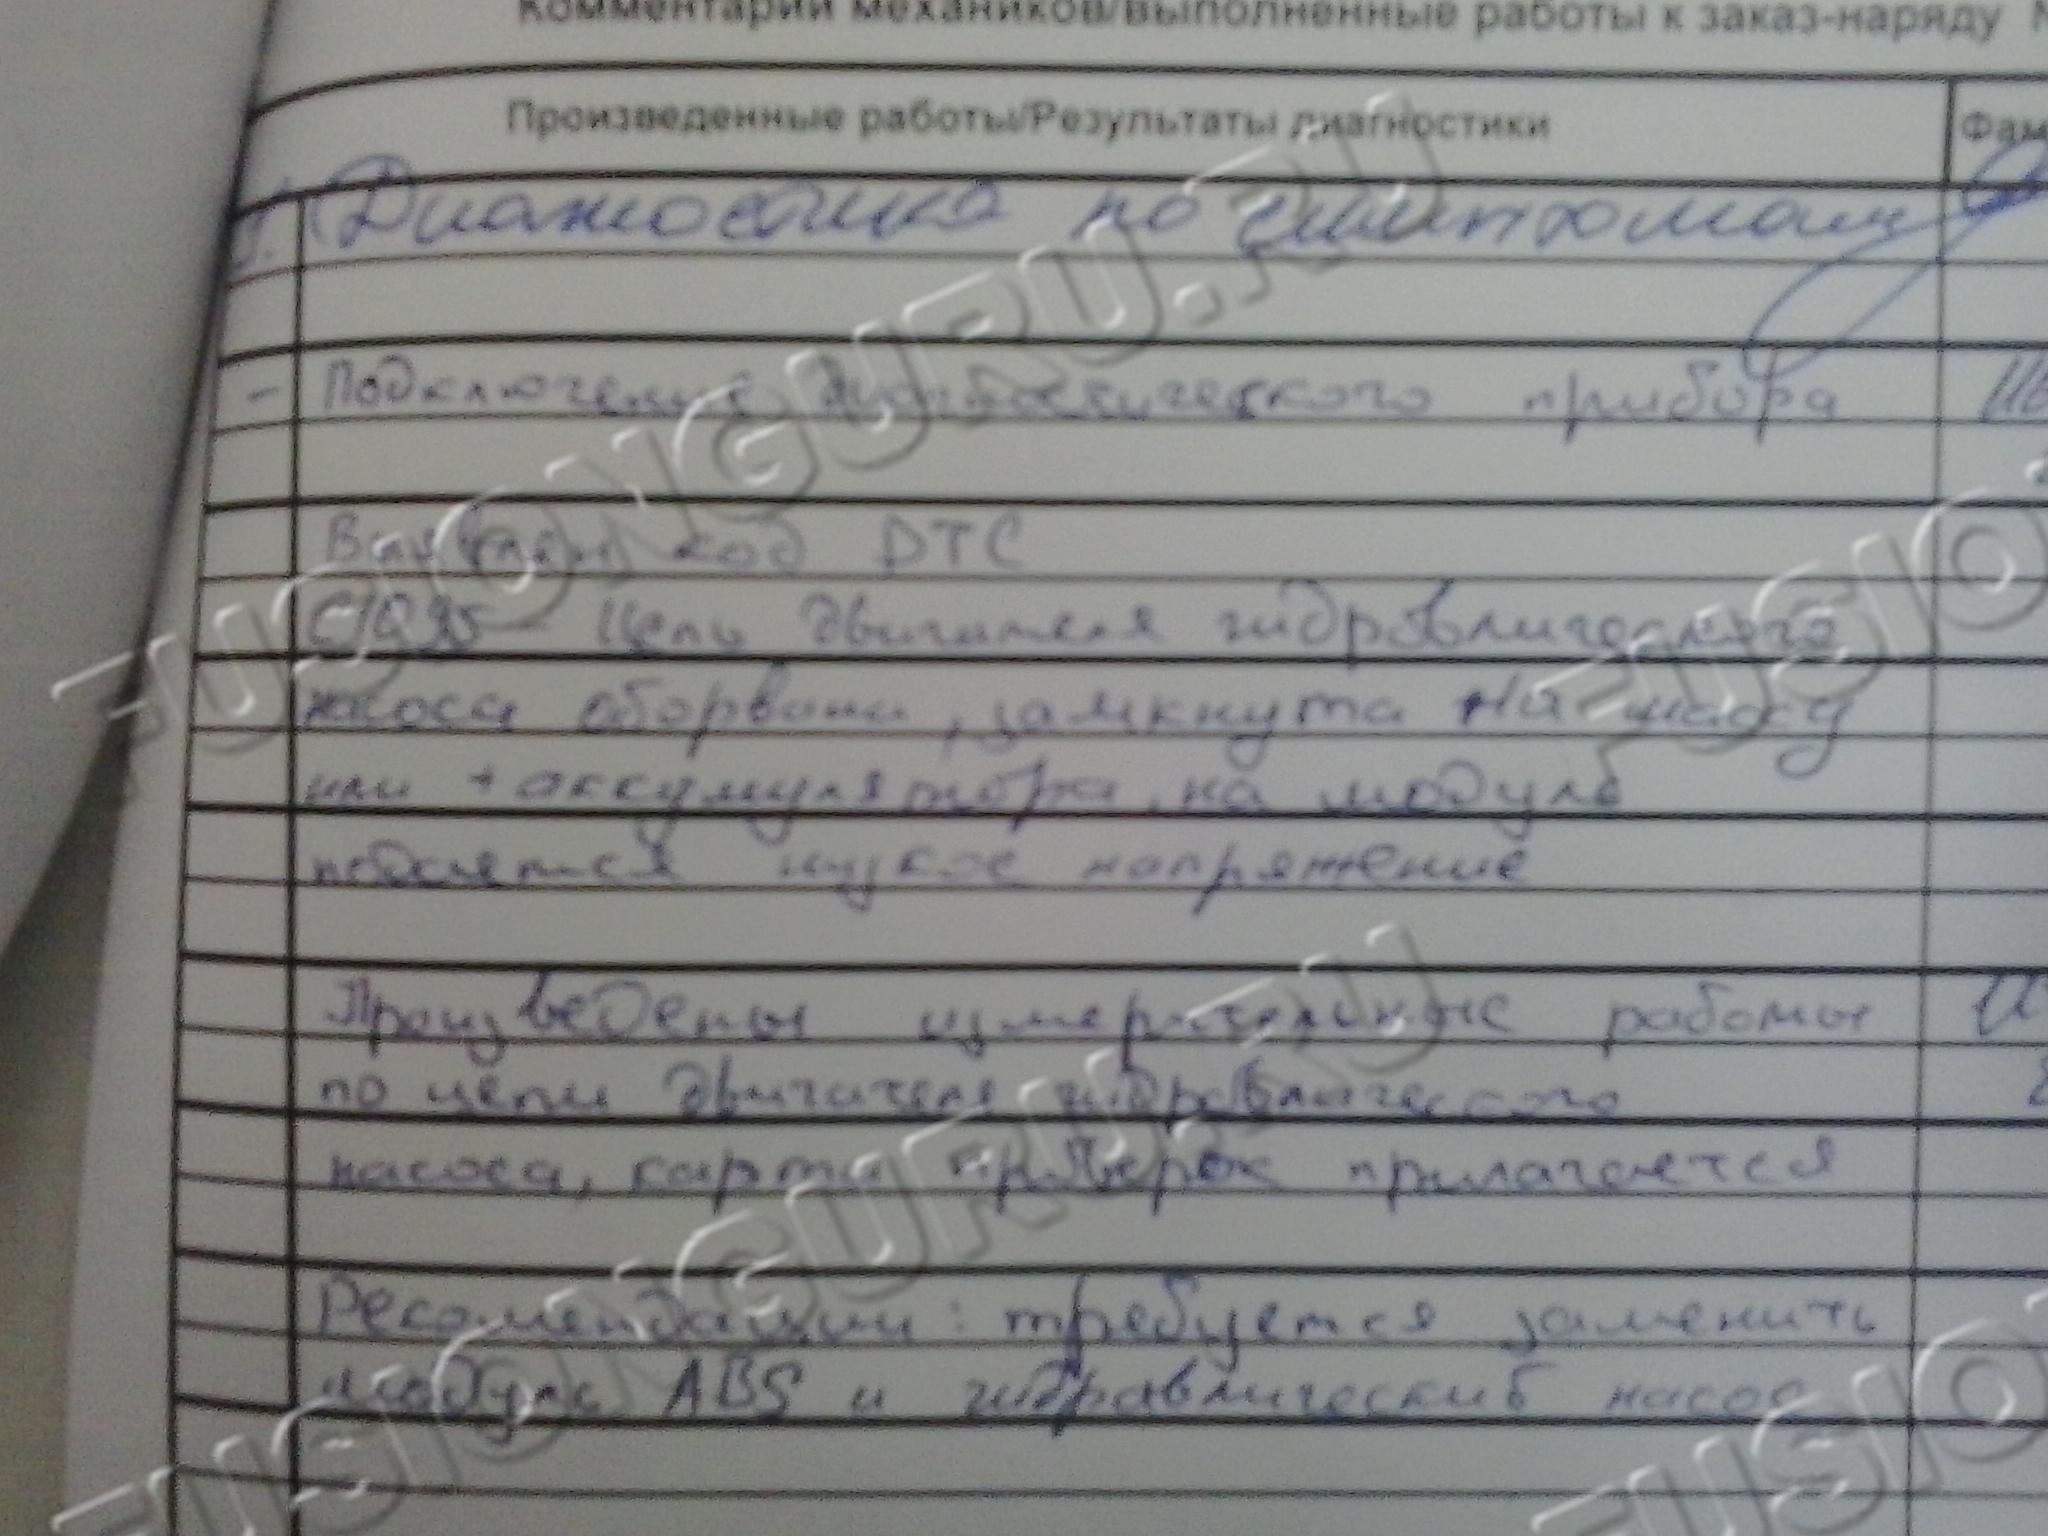 Комментарии механиков/выполненные работы к заказ-наряду №
Произведенные работы/Результаты диагностики Фам
1. Диагностика по симптомам
- Подключение диагностического прибора Ив
Выявлен код DTC
C1095 - Цепь двигателя гидровлического
насоса оборвана, замкнута на массу
или + аккумулятора, на модуль
подается низкое напряжение
Произведены измерительные работы
по цепи двигателя гидровлического
насоса, карта проверок прилагается
Рекомендации: требуется заменить
модуль ABS и гидравлический насос
FUSIONGURU.RU
FUSIONGURU.RU